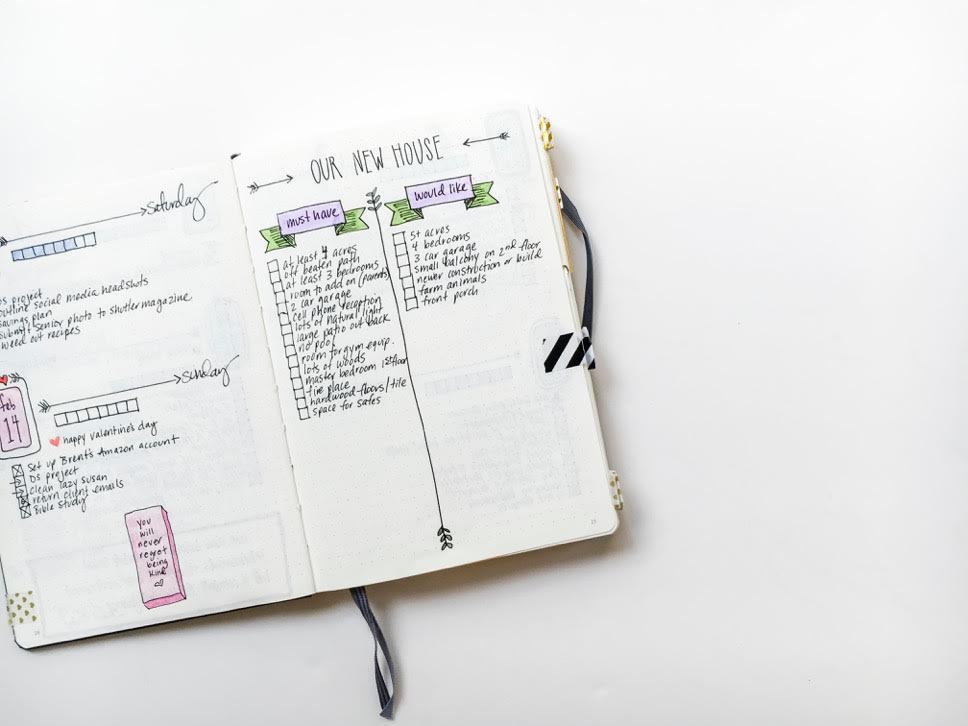 saturday
DS project
outline social media headshots
savings plan
submit senior photo to shutter magazine
weed out recipes
sunday
feb
14
happy valentine's day
Set up Brent's Amazon account
DS project
clean lazy susan
return client emails
Bible Study
you
will
never
regret
being
kind
OUR NEW HOUSE
must have
at least 4 acres
off beaten path
at least 3 bedrooms
room to add on (parents)
2 car garage
cell phone reception
lots of natural light
large patio out back
no pool
room for gym equip.
lots of woods
master bedroom 1st floor
fire place
hardwood floors/tile
space for safes
would like
5+ acres
4 bedrooms
3 car garage
small balcony on 2nd floor
newer construction or build
farm animals
front porch